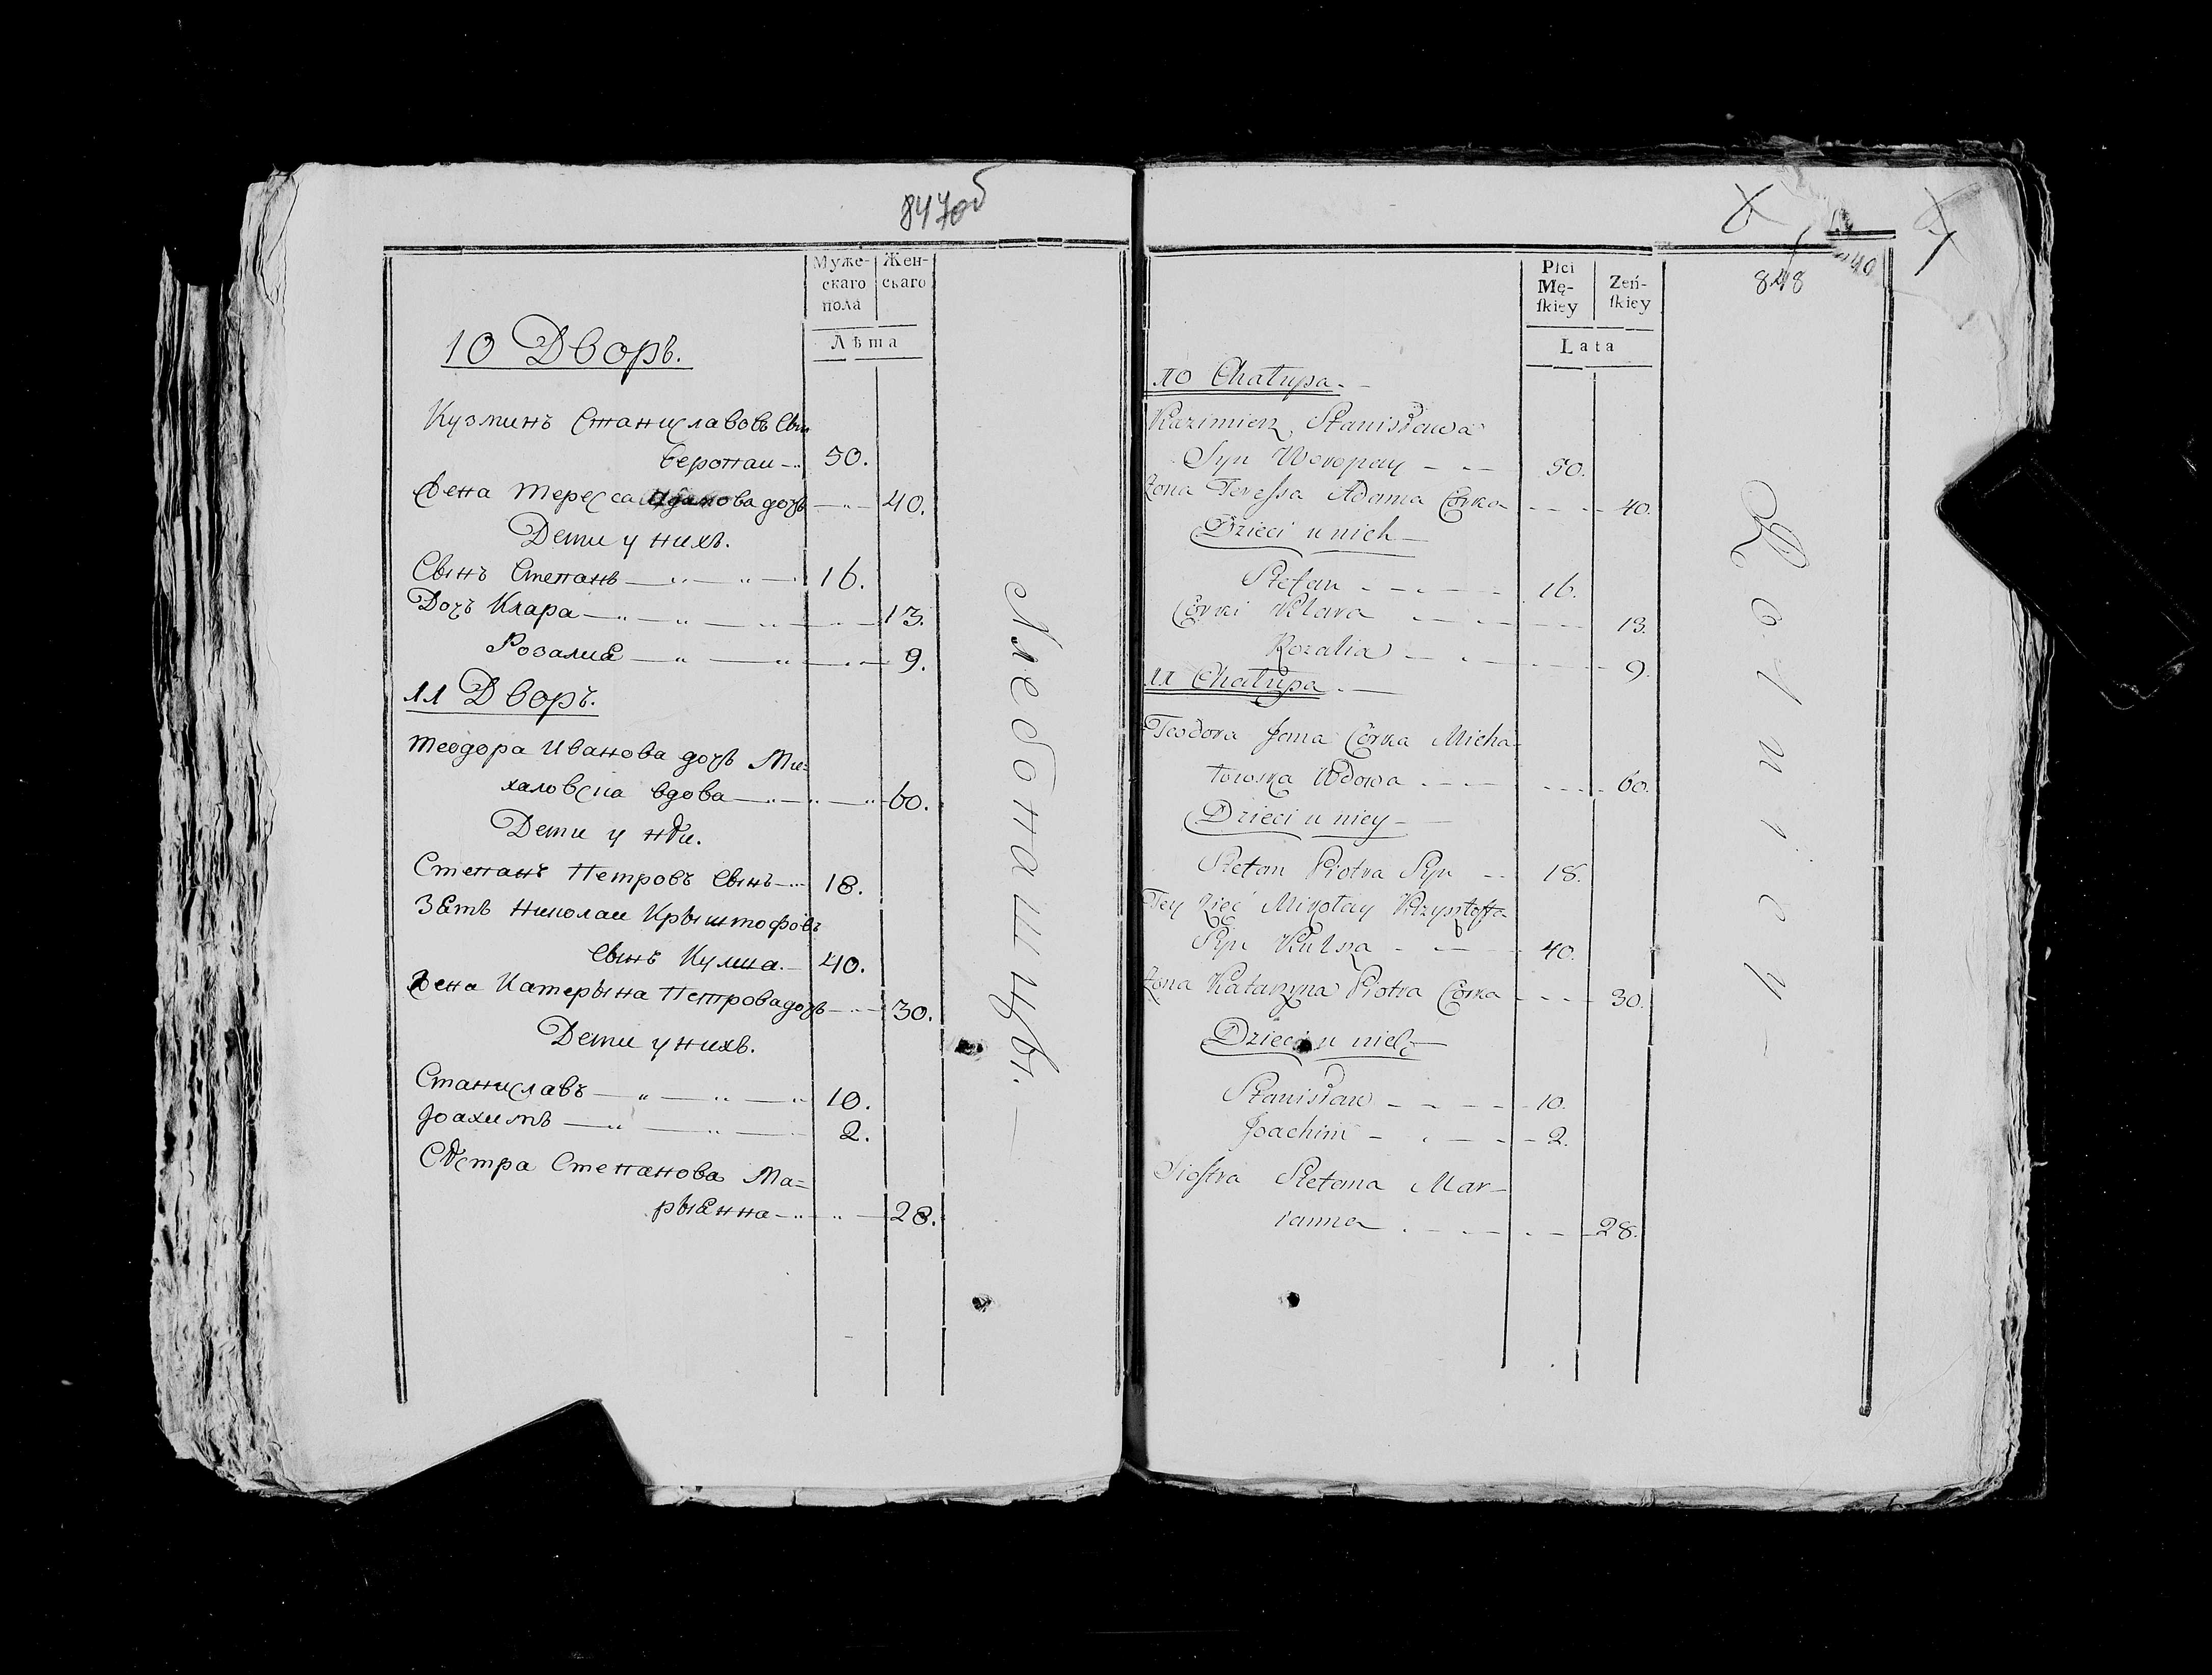 847об
Муже-
скаго
пола
Жен-
скаго
Лѣта
10 Дворъ.
Кузминъ Станиславовъ Сын
Веропаи 50.
Жена Тересса Адамова дочъ 40.
Дети у нихъ.
Сынъ Степанъ 16.
Дочъ Клара 13.
Розалиа 9.
11 Дворъ.
Теодора Иванова дочъ Ми=
халовска вдова 60.
Дети у нѣи.
Степанъ Петровъ Сынъ 18.
Зять Николаи Крыштофовъ
Сынъ Кулша. 40.
Жена Катерына Петрова дочъ 30.
Дети у нихъ.
Станиславъ 10.
Јоахимъ 2.
Сѣстра Степанова Ма=
рыянна 28.
848
40
Płci
Mę-
ſkiey
Zeń-
ſkiey
Lata
10 Chałupa.
Kazimierz Stanisława
Syn Woropay 50.
Żona Teressa Adama Córka 40.
Dzieci u nich
Stefan 16.
Córki Klara 13.
Rozalia 9.
11 Chałupa.
Teodora Jana Córka Micha-
łowska Wdowa 60.
Dzieci u niey
Stefan Piotra Syn 18.
Tey Zięć Mikołay Krzysztoffa
Syn Kulsza 40.
Żona Katarzyna Piotra Córka 30.
Dzieci u nich
Stanisław 10.
Joachim 2.
Siostra Stefana Mar-
ianna 28.
Rolnicy